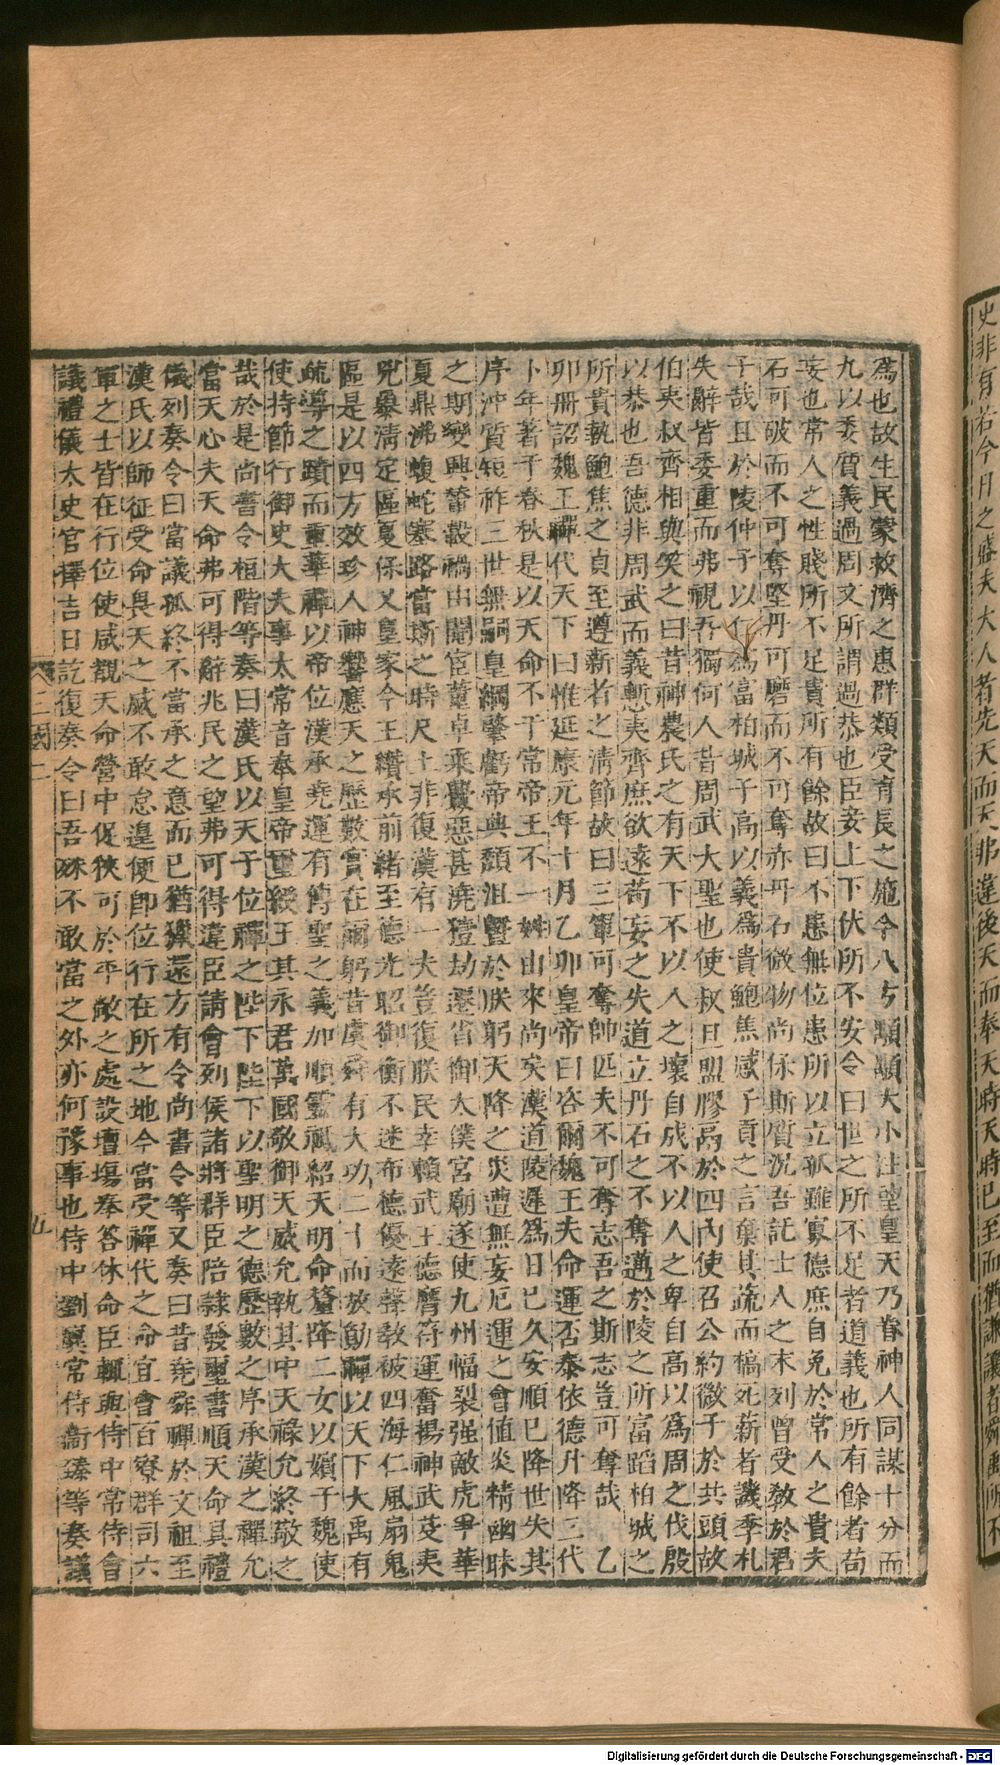 史非有若今日之盛夫大人者先天而天弗違後天而奉天時天時已至而猶謙讓者舜禹所不
為也故生民蒙救濟之惠群類受育長之施今八方顒顒大小注望皇天乃眷神人同謀十分而
九以委質義過周文所謂過恭也臣妾上下伏所不安令曰世之所不足者道義也所有餘者苟
妄也常人之性賤所不足貴所有餘故曰不患無位患所以立孤雖寡德庶自免於常人之貴夫
石可破而不可奪堅丹可磨而不可奪赤丹石微物尚保斯質況吾託士人之末列曾受教於君
子哉且於陵仲子以仁為富柏城子高以義為貴鮑焦感子貢之言棄其疏而槁死薪者譏季札
失辭皆委重而弗視吾獨何人昔周武大聖也使叔旦盟膠鬲於四內使召公約微子於共頭故
伯夷叔齊相與笑之曰昔神農氏之有天下不以人之壞自成不以人之卑自高以為周之伐殷
以恭也吾德非周武而義慙夷齊庶欲遠苟妄之失道立丹石之不奪邁於陵之所富蹈柏城之
所貴執鮑焦之貞至遵薪者之清節故曰三軍可奪帥匹夫不可奪志吾之斯志豈可奪哉 乙
卯冊詔魏王禪代天下曰惟延康元年十月乙卯皇帝曰咨爾魏王夫命運否泰依德升降三代
卜年著于春秋是以天命不于常帝王不一姓由來尚矣漢道陵遲為日已久安順已降世失其
序沖質短祚三世無嗣皇綱肇虧帝典頹沮暨於朕躬天降之災遭無妄厄運之會值炎精幽昧
之期變興輦轂禍由閹宦董卓乘釁惡甚澆豷劫遷省御太僕宮廟遂使九州幅裂强敵虎爭華
夏鼎沸蝮蛇塞路當斯之時尺土非復漢有一夫豈復朕民幸賴武王德膺符運奮揚神武芟夷
兇暴清定區夏保乂皇家今王纘承前緒至德光昭御衡不迷布德優遠聲教被四海仁風扇鬼
區是以四方效珍人神響應天之歷數實在爾躬昔虞舜有大功二十而放勛禪以天下大禹有
疏導之蹟而重華禪以帝位漢承堯運有傳聖之義加順靈祗紹天明命釐降二女以嬪于魏使
使持節行御史大夫事太常音奉皇帝璽綬王其永君萬國敬御天威允執其中天祿允終敬之
哉於是尚書令桓階等奏曰漢氏以天子位禪之陛下陛下以聖明之德歷數之序承漢之禪允
當天心夫天命弗可得辭兆民之望弗可得違臣請會列侯諸將群臣陪隸發璽書順天命具禮
儀列奏令曰當議孤終不當承之意而已猶獵還方有令尚書令等又奏曰昔堯舜禪於文祖至
漢氏以師征受命畏天之威不敢怠遑便即位行在所之地今當受禪代之命宜會百寮群司六
軍之士皆在行位使咸觀天命營中促狹可於平敞之處設壇場奉答休命臣輒與侍中常侍會
議禮儀太史官擇吉日訖復奏令曰吾殊不敢當之外亦何豫事也侍中劉廙常侍衞臻等奏議
三國二 五
Digitalisierung gefördert durch die Deutsche Forschungsgemeinschaft - DFG